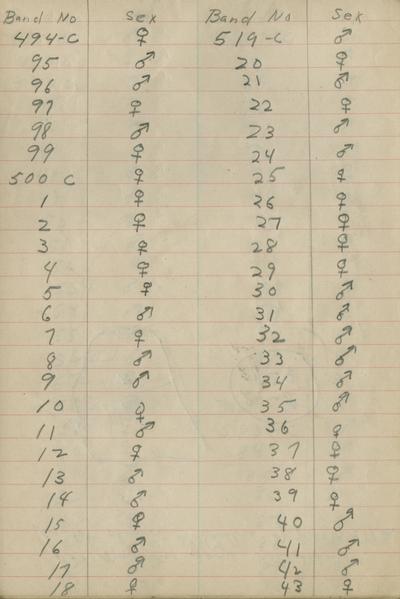 Band No Sex Band No Sex
494-C ♀ 519-C ♂
95 ♂ 20 ♀
96 ♂ 21 ♂
97 ♀ 22 ♀
98 ♂ 23 ♂
99 ♀ 24 ♂
500 C ♀ 25 ♀
1 ♀ 26 ♀
2 ♀ 27 ♀
3 ♀ 28 ♀
4 ♀ 29 ♀
5 ♀ 30 ♂
6 ♂ 31 ♂
7 ♀ 32 ♂
8 ♂ 33 ♂
9 ♂ 34 ♂
10 ♀ 35 ♂
11 ♂ 36 ♀
12 ♀ 37 ♀
13 ♂ 38 ♀
14 ♂ 39 ♀
15 ♀ 40 ♂
16 ♂ 41 ♂
17 ♂ 42 ♂
18 ♀ 43 ♀